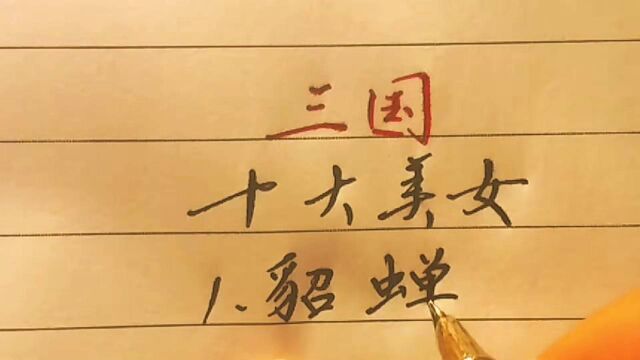 三国
十大美女
1.貂蝉